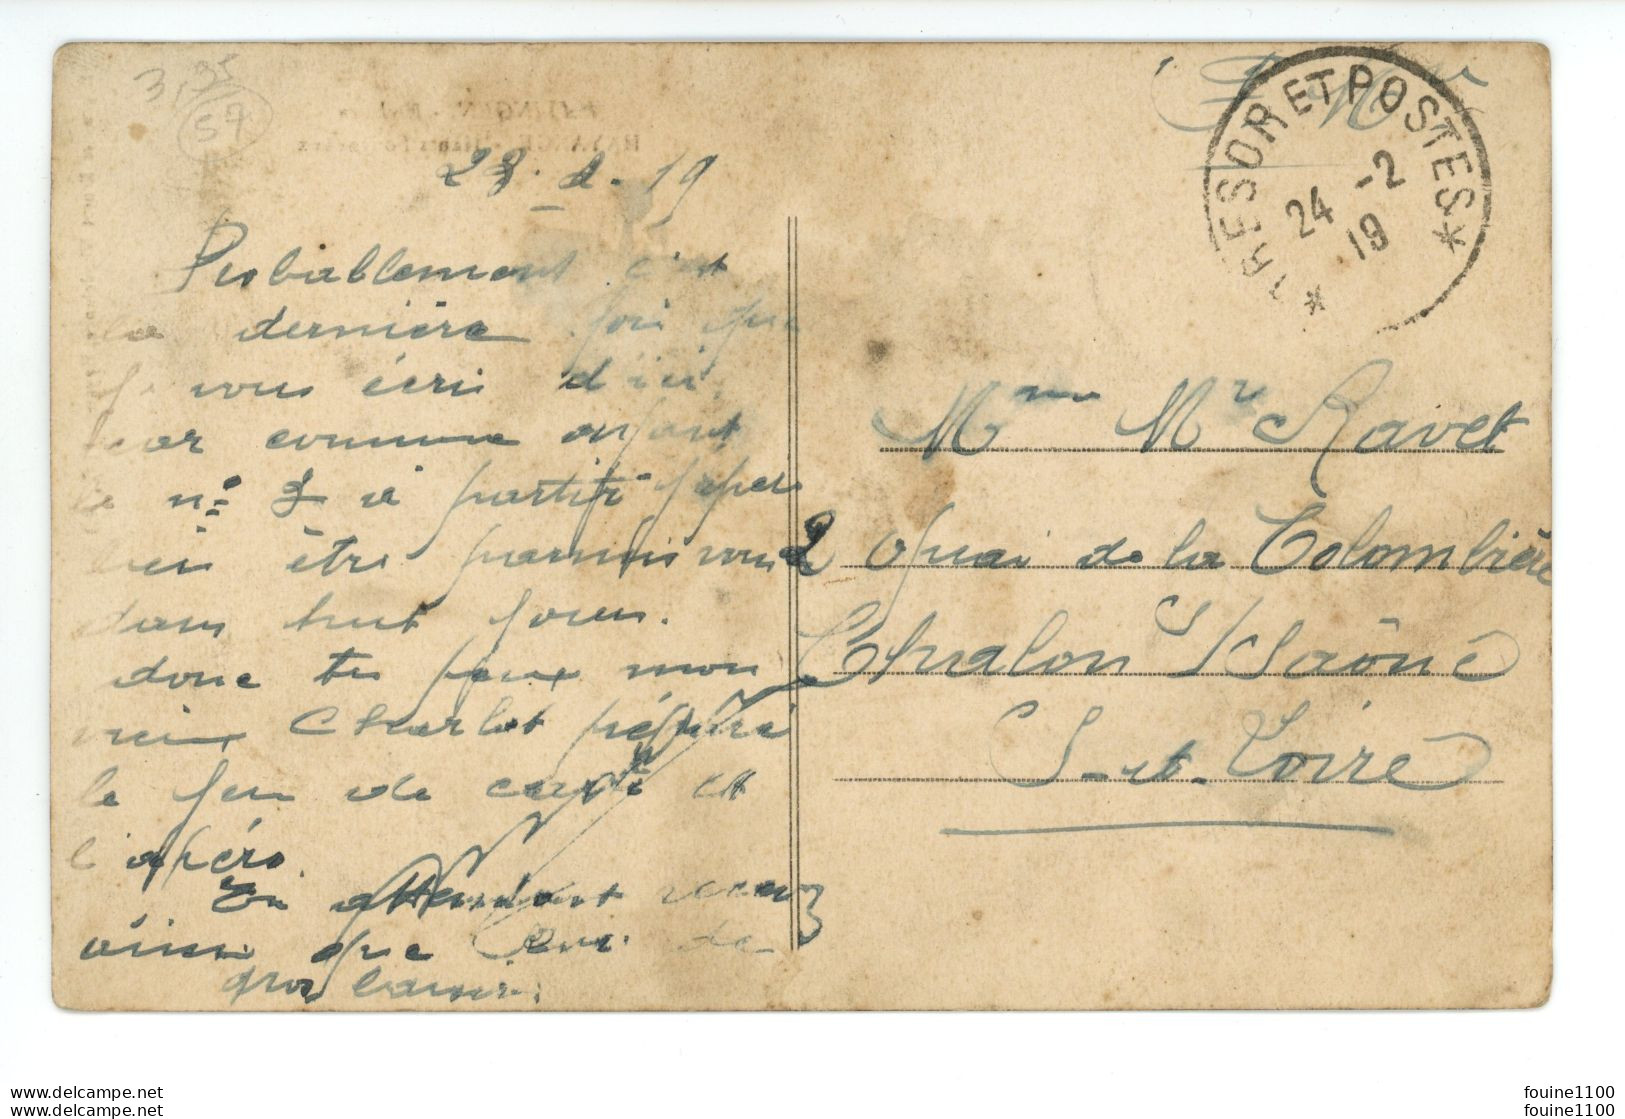 3,35
57
23.2.19
Probablement c'est
la dernière fois que
je vous écris d'ici,
car comme enfant
le n° 2 à partir j'espère
bien être parmis vous
dans huit jours.
donc tu peux mon
vieux Charlot préparé
le jeu de carte et
l'apéro.
En attendant recevez
ainsi que de
gros baisers
F. M.
TRESOR ET POSTES
24 -2
19
Mme Mr Ravet
2 Quai de la Colombière
Chalon s/ Saône
S-et-Loire
www.delcampe.net
www.delcampe.net
fouine1100
fouine1100